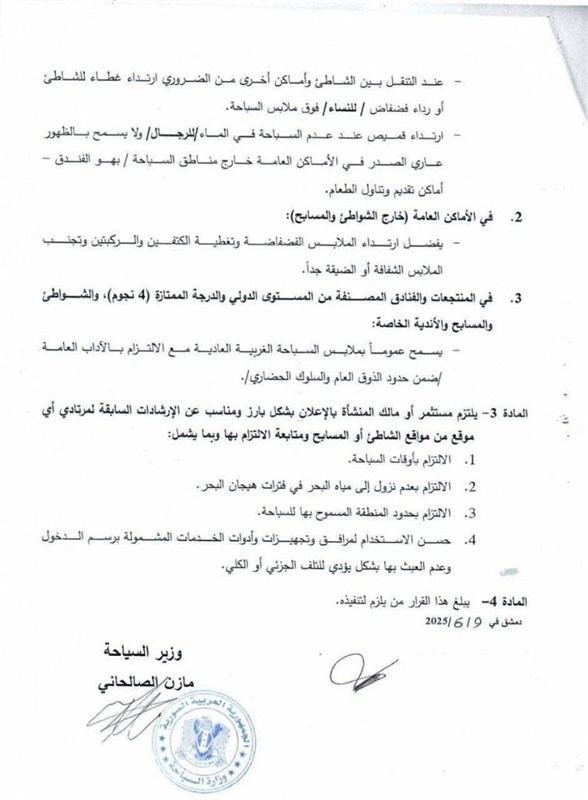 - عند التنقل بين الشاطئ وأماكن أخرى من الضروري ارتداء غطاء للشاطئ
أو رداء فضفاض /للنساء/ فوق ملابس السباحة.
- ارتداء قميص عند عدم السباحة في الماء/للرجال/ ولا يسمح بالظهور
عاري الصدر في الأماكن العامة خارج مناطق السباحة / بهو الفندق –
أماكن تقديم وتناول الطعام.
2. في الأماكن العامة (خارج الشواطئ والمسابح):
- يفضل ارتداء الملابس الفضفاضة وتغطية الكتفين والركبتين وتجنب
الملابس الشفافة أو الضيقة جداً.
3. في المنتجعات والفنادق المصنفة من المستوى الدولي والدرجة الممتازة (4 نجوم)، والشواطئ
والمسابح والأندية الخاصة:
- يسمح عموماً بملابس السباحة الغربية العادية مع الالتزام بالآداب العامة
/ضمن حدود الذوق العام والسلوك الحضاري/.
المادة 3- يلتزم مستثمر أو مالك المنشأة بالإعلان بشكل بارز ومناسب عن الإرشادات السابقة لمرتادي أي
موقع من مواقع الشاطئ أو المسابح ومتابعة الالتزام بها وبما يشمل:
1. الالتزام بأوقات السباحة.
2. الالتزام بعدم نزول إلى مياه البحر في فترات هيجان البحر.
3. الالتزام بحدود المنطقة المسموح بها للسباحة.
4. حسن الاستخدام لمرافق وتجهيزات وأدوات الخدمات المشمولة برسم الدخول
وعدم العبث بها بشكل يؤدي للتلف الجزئي أو الكلي.
المادة 4- يبلغ هذا القرار من يلزم لتنفيذه.
دمشق في 2025/6/9
وزير السياحة
مازن الصالحاني
الجمهورية العربية السورية
وزارة السياحة